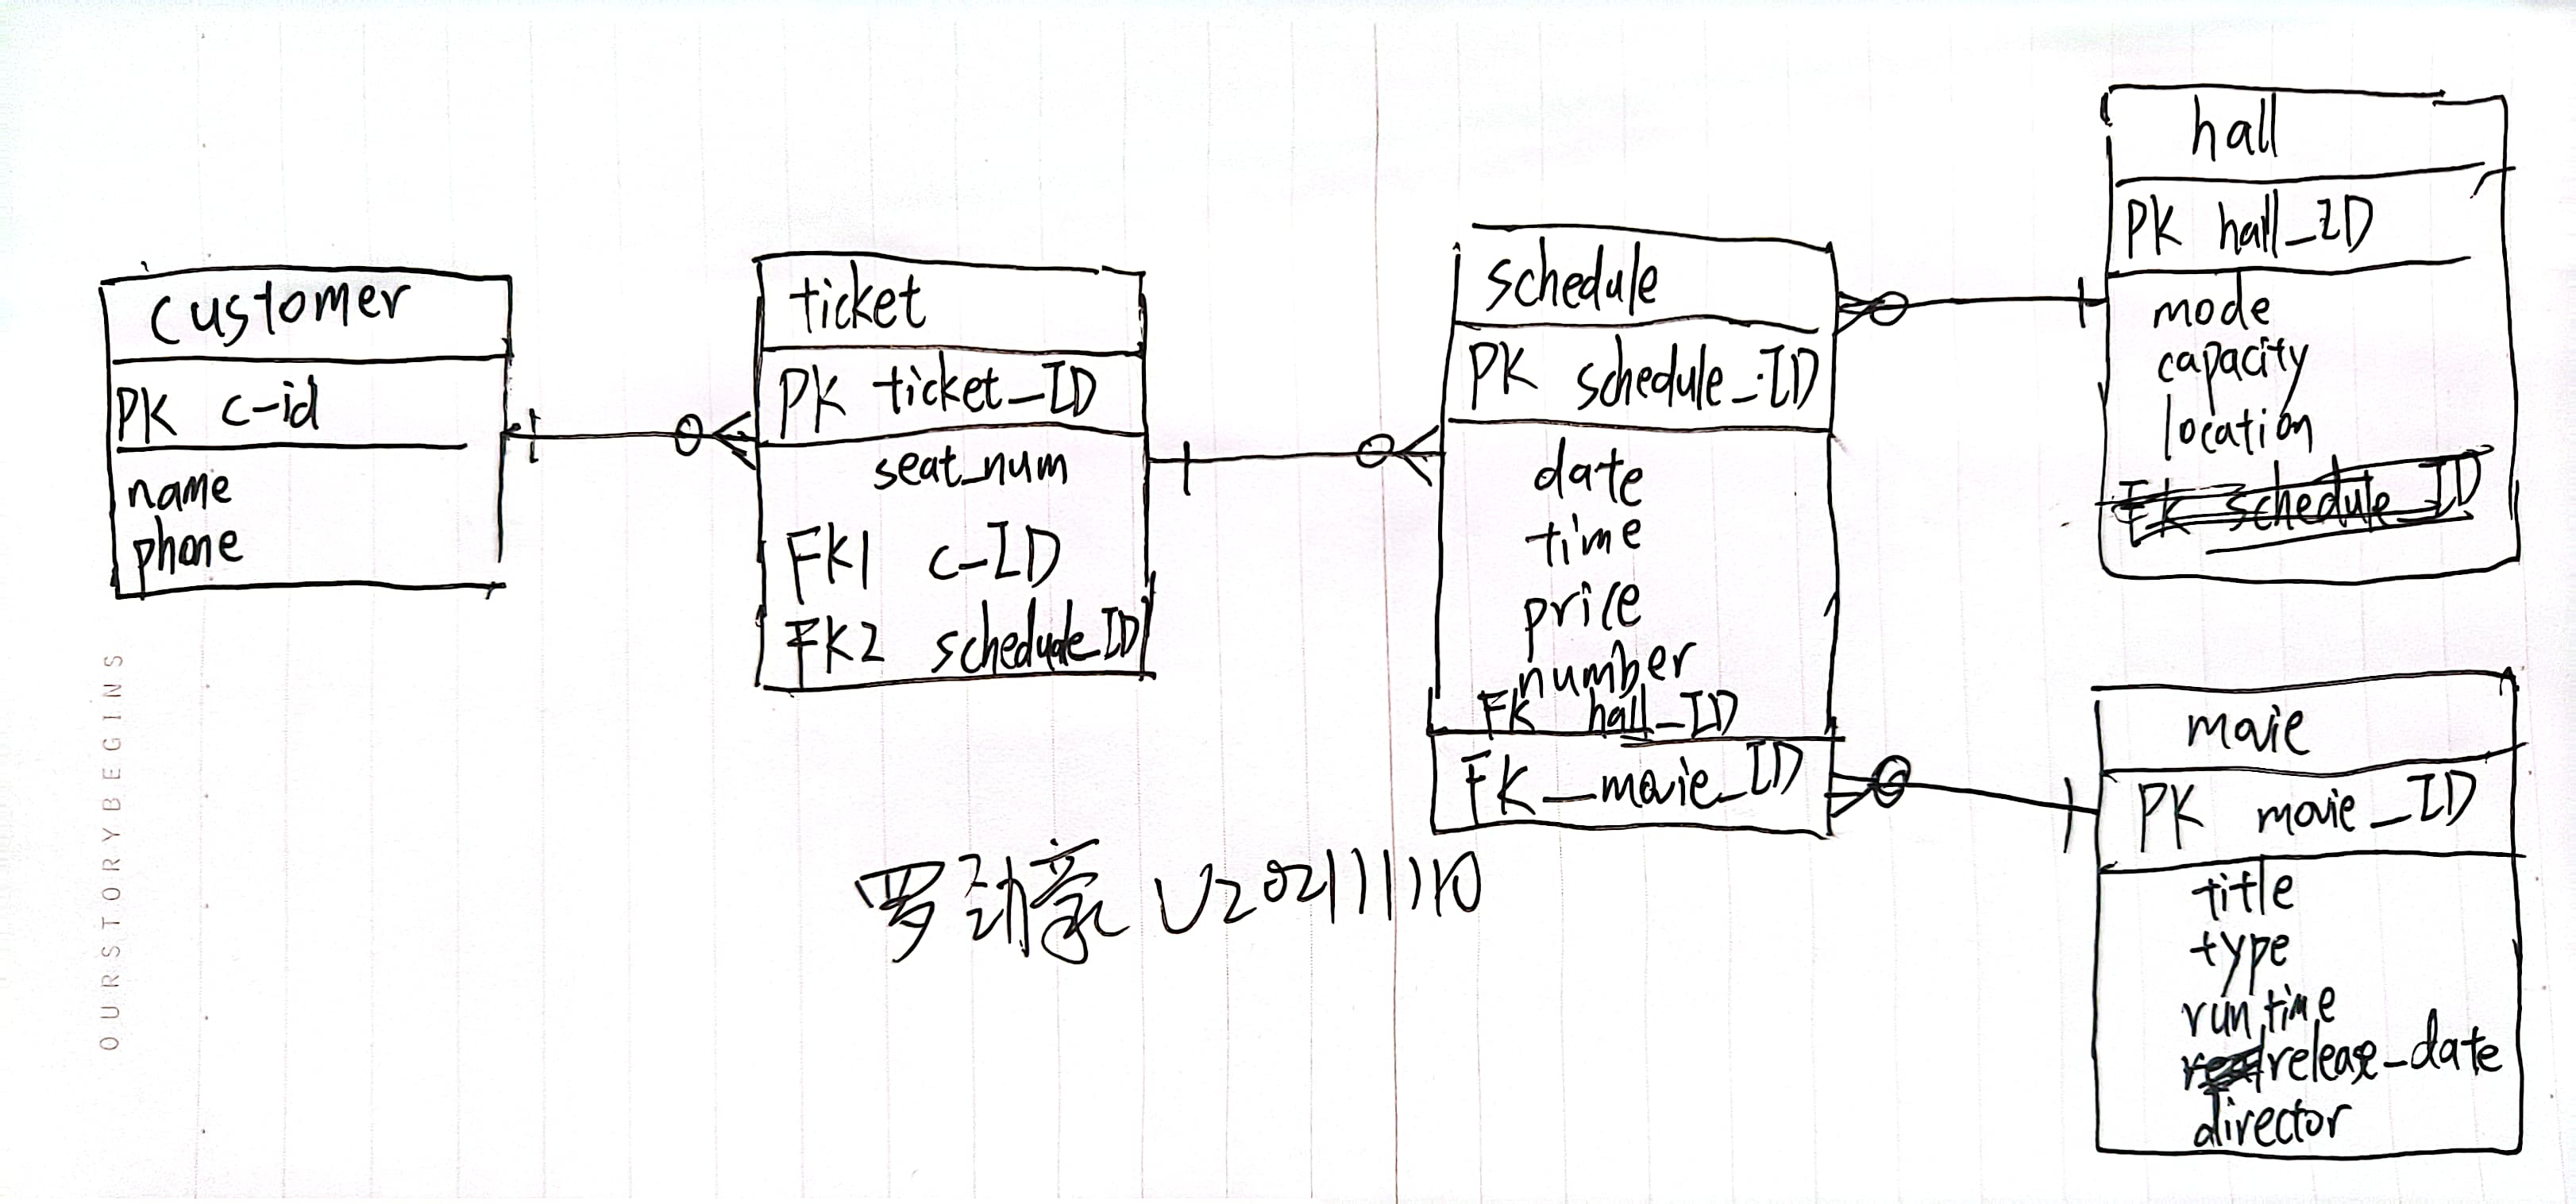 customer
PK c-id
name
phone
ticket
PK ticket_ID
seat_num
FK1 c-ID
FK2 schedule_ID
schedule
PK schedule_ID
date
time
price
number
FK hall_ID
FK_movie_ID
hall
PK hall_ID
mode
capacity
location
FK schedule_ID
movie
PK movie_ID
title
type
runtime
release_date
director
罗劲豪 U202111110
OURSTORYBEGINS